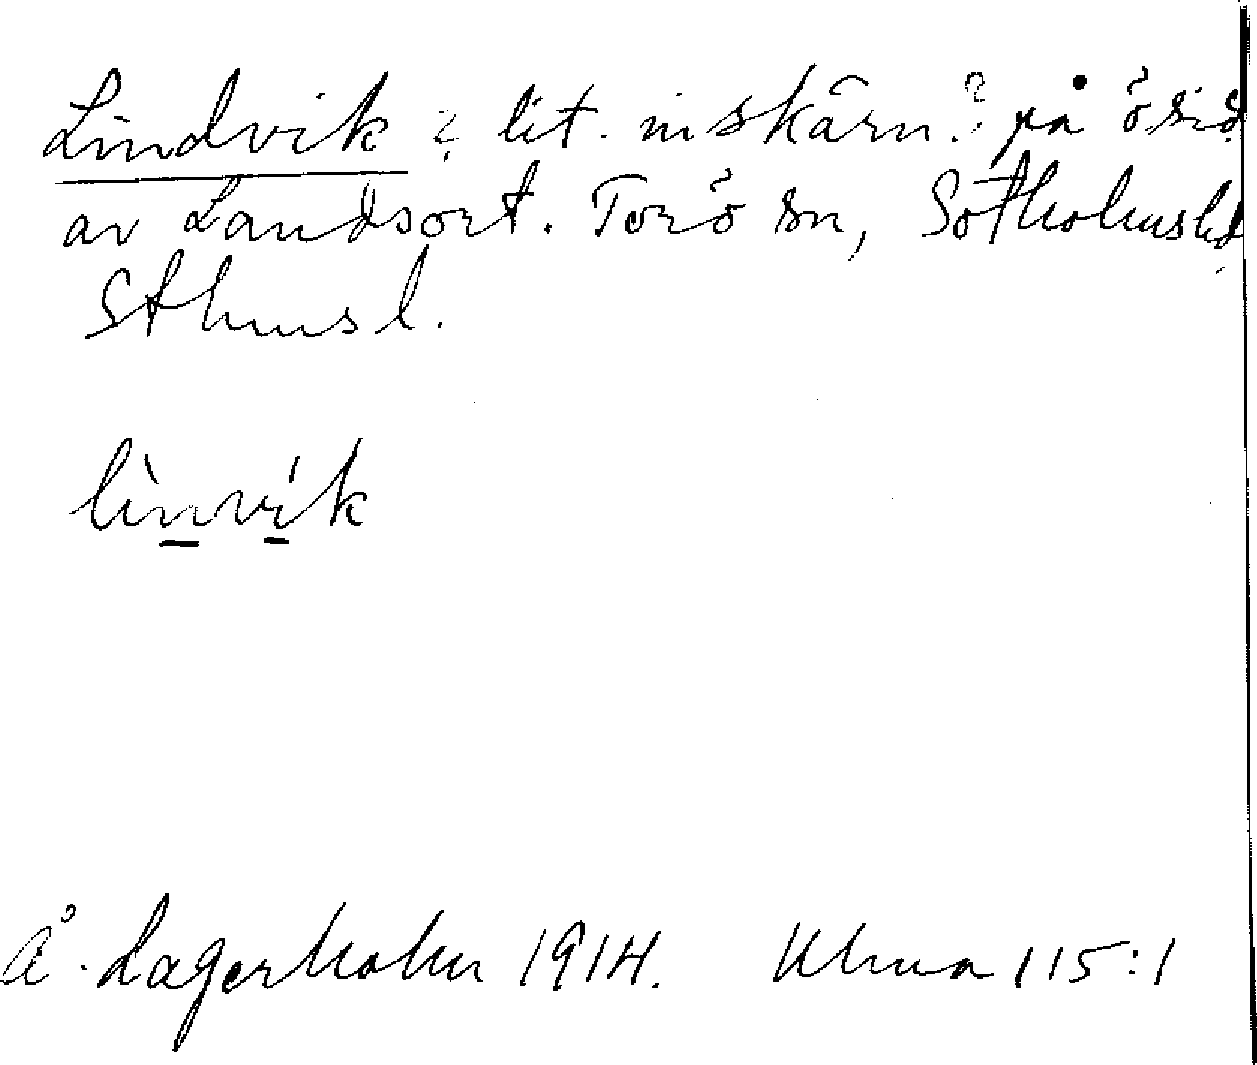 Lindvik ? lit. inskärn.? på ösid.
av Landsort. Torö sn, Sotholmshd
Sthmsl.
lìnvík
Å. Lagerholm 1914. Uhma 115:1